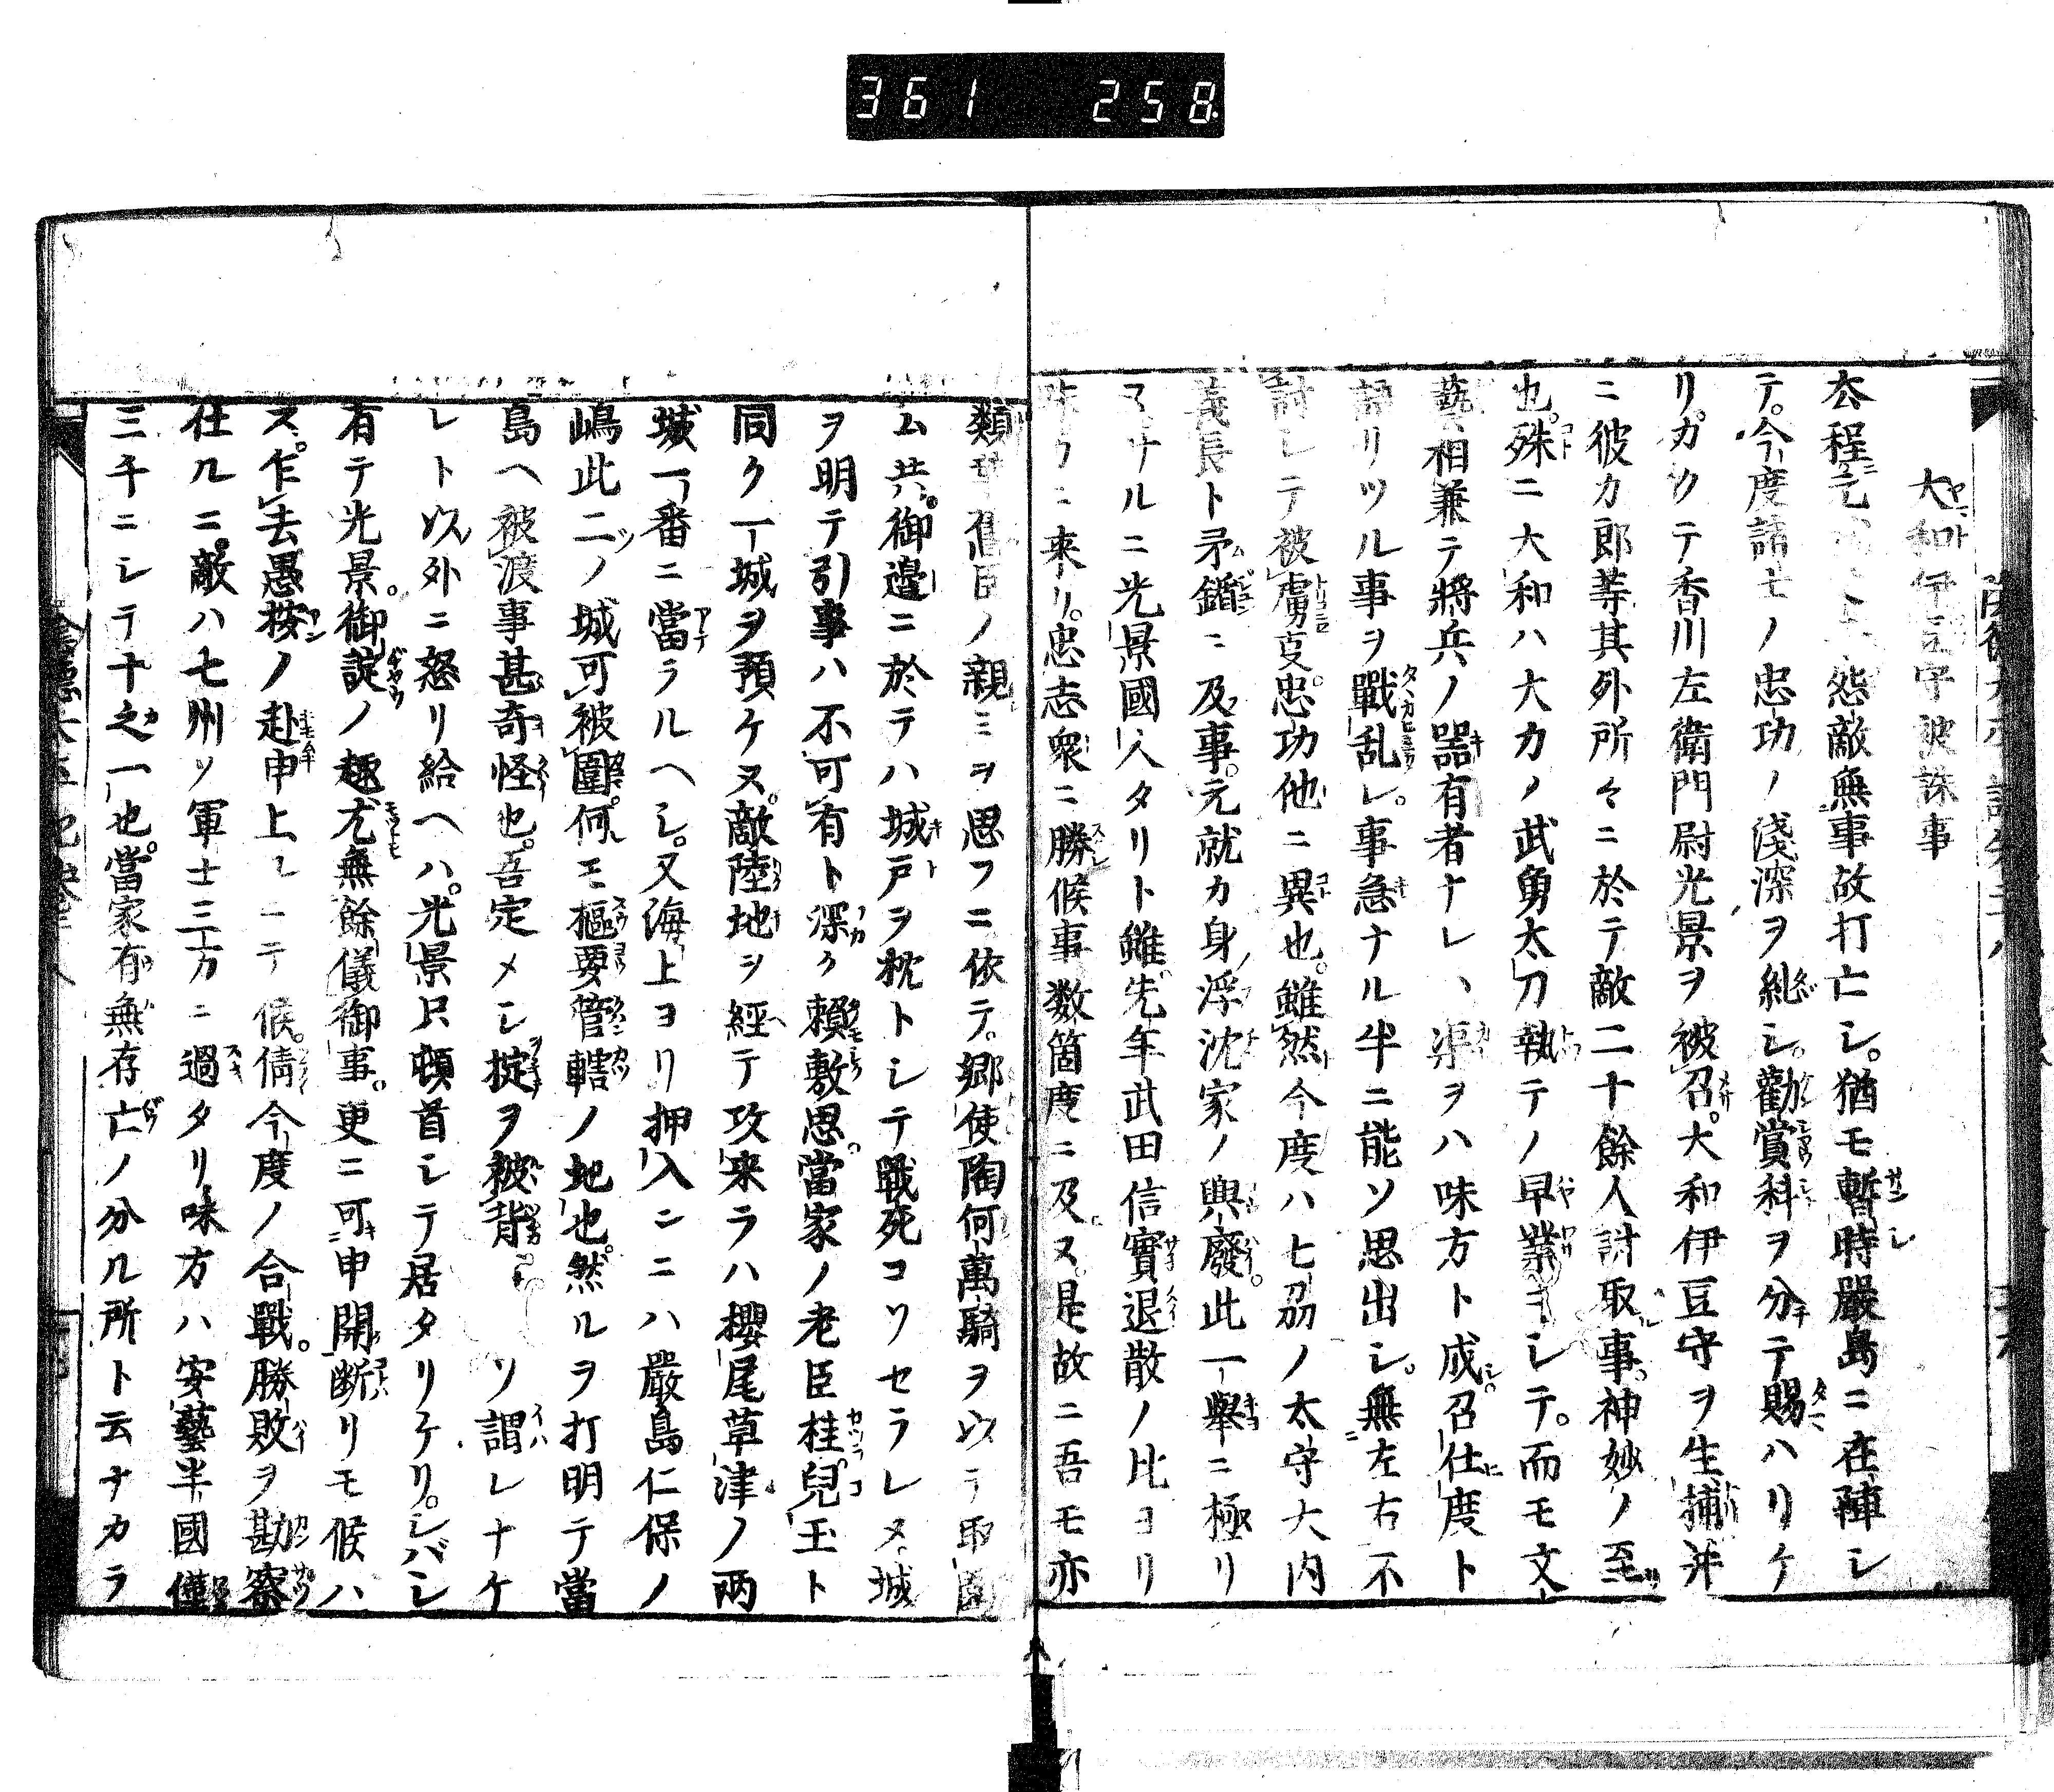 361 258
大和伊豆守被誅事
去程ニ元就 怨敵無事故打亡シ。猶モ暫時嚴島ニ在陣シ
テ。今度諸士ノ忠功ノ淺深ヲ糺シ。勸賞科ヲ分テ賜ハリケ
リ。カクテ香川左衛門尉光景ヲ被召。大和伊豆守ヲ生捕并
ニ彼カ郎等其外所々ニ於テ敵二十餘人討取事。神妙ノ至
也。殊ニ大和ハ大カノ武勇太刀執テノ早業ヲシテ。而モ文
藝相兼テ將兵ノ器有者ナレハ渠ヲハ味方ト成シ。召仕度ト
語リツル事ヲ戰乱レ。事急ナル半ニ能ソ思出シ。無左右不
討シテ被虜叓。忠功他ニ異也。雖然今度ハ七刕ノ太守大内
義長ト矛鏥ニ及事。元就カ身ノ浮沈家ノ興廢。此一擧ニ極リ
ヌサルニ光景國人タリト雖。先年武田信實退散ノ比ヨリ
昨今ニ来リ。忠志衆ニ勝候事数箇度ニ及ヌ。是故ニ吾モ亦
類葉舊臣ノ親ミヲ思フニ依テ。郷使陶何萬騎ヲ以テ取圍
ム共。御邉ニ於テハ城戸ヲ枕トシテ戰死コソセラレメ城
ヲ明テ引事ハ不可有ト深ク頼敷思。當家ノ老臣桂兒玉ト
同ク一城ヲ預ケヌ。敵陸地ヲ經テ攻来ラハ櫻尾草津ノ兩
城一番ニ當ラルヘシ。又海上ヨリ押入ンニハ嚴島仁保ノ
嶋此二ツノ城可被圍。何モ樞要管轄ノ地也。然ルヲ打明テ當
島ヘ被渡事甚奇怪也。吾定メシ掟ヲ被背 ソ謂レナケ
レト以外ニ怒リ給ヘハ。光景只頓首シテ居タリケリ。シバシ
有テ光景。御諚ノ趣尤無餘儀御事。更ニ可申開断リモ候ハ
ス。乍去愚按ノ赴申上 テ候。倩今度ノ合戰。勝敗ヲ勘察
仕ルニ。敵ハ七州ノ軍士三万ニ過タリ味方ハ安藝半國僅
三千ニシテ十之一也。當家有無存亡ノ分ル所ト云ナカラ